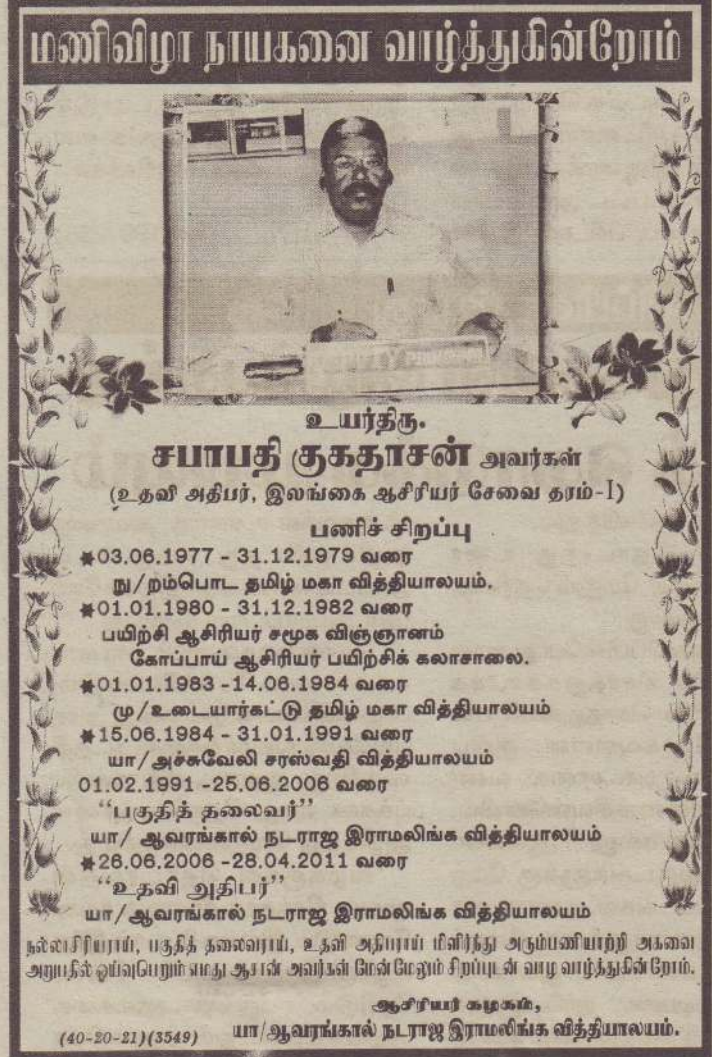 மணிவிழா நாயகனை வாழ்த்துகின்றோம்
உயர்திரு.
சபாபதி குகதாசன் அவர்கள்
(உதவி அதிபர், இலங்கை ஆசிரியர் சேவை தரம்-I)
பணிச் சிறப்பு
✱03.06.1977 - 31.12.1979 வரை
நு/றம்பொட தமிழ் மகா வித்தியாலயம்.
✱01.01.1980 - 31.12.1982 வரை
பயிற்சி ஆசிரியர் சமூக விஞ்ஞானம்
கோப்பாய் ஆசிரியர் பயிற்சிக் கலாசாலை.
✱01.01.1983 -14.06.1984 வரை
மு/உடையார்கட்டு தமிழ் மகா வித்தியாலயம்
✱15.06.1984 - 31.01.1991 வரை
யா/அச்சுவேலி சரஸ்வதி வித்தியாலயம்
01.02.1991 -25.06.2006 வரை
“பகுதித் தலைவர்”
யா/ ஆவரங்கால் நடராஜ இராமலிங்க வித்தியாலயம்
✱26.06.2006 -28.04.2011 வரை
“உதவி அதிபர்”
யா/ஆவரங்கால் நடராஜ இராமலிங்க வித்தியாலயம்
நல்லாசிரியராய், பகுதித் தலைவராய், உதவி அதிபராய் மிளிர்ந்து அரும்பணியாற்றி அகவை
அறுபதில் ஓய்வுபெறும் எமது ஆசான் அவர்கள் மேன்மேலும் சிறப்புடன் வாழ வாழ்த்துகின்றோம்.
ஆசிரியர் கழகம்,
(40-20-21)(3549) யா/ஆவரங்கால் நடராஜ இராமலிங்க வித்தியாலயம்.